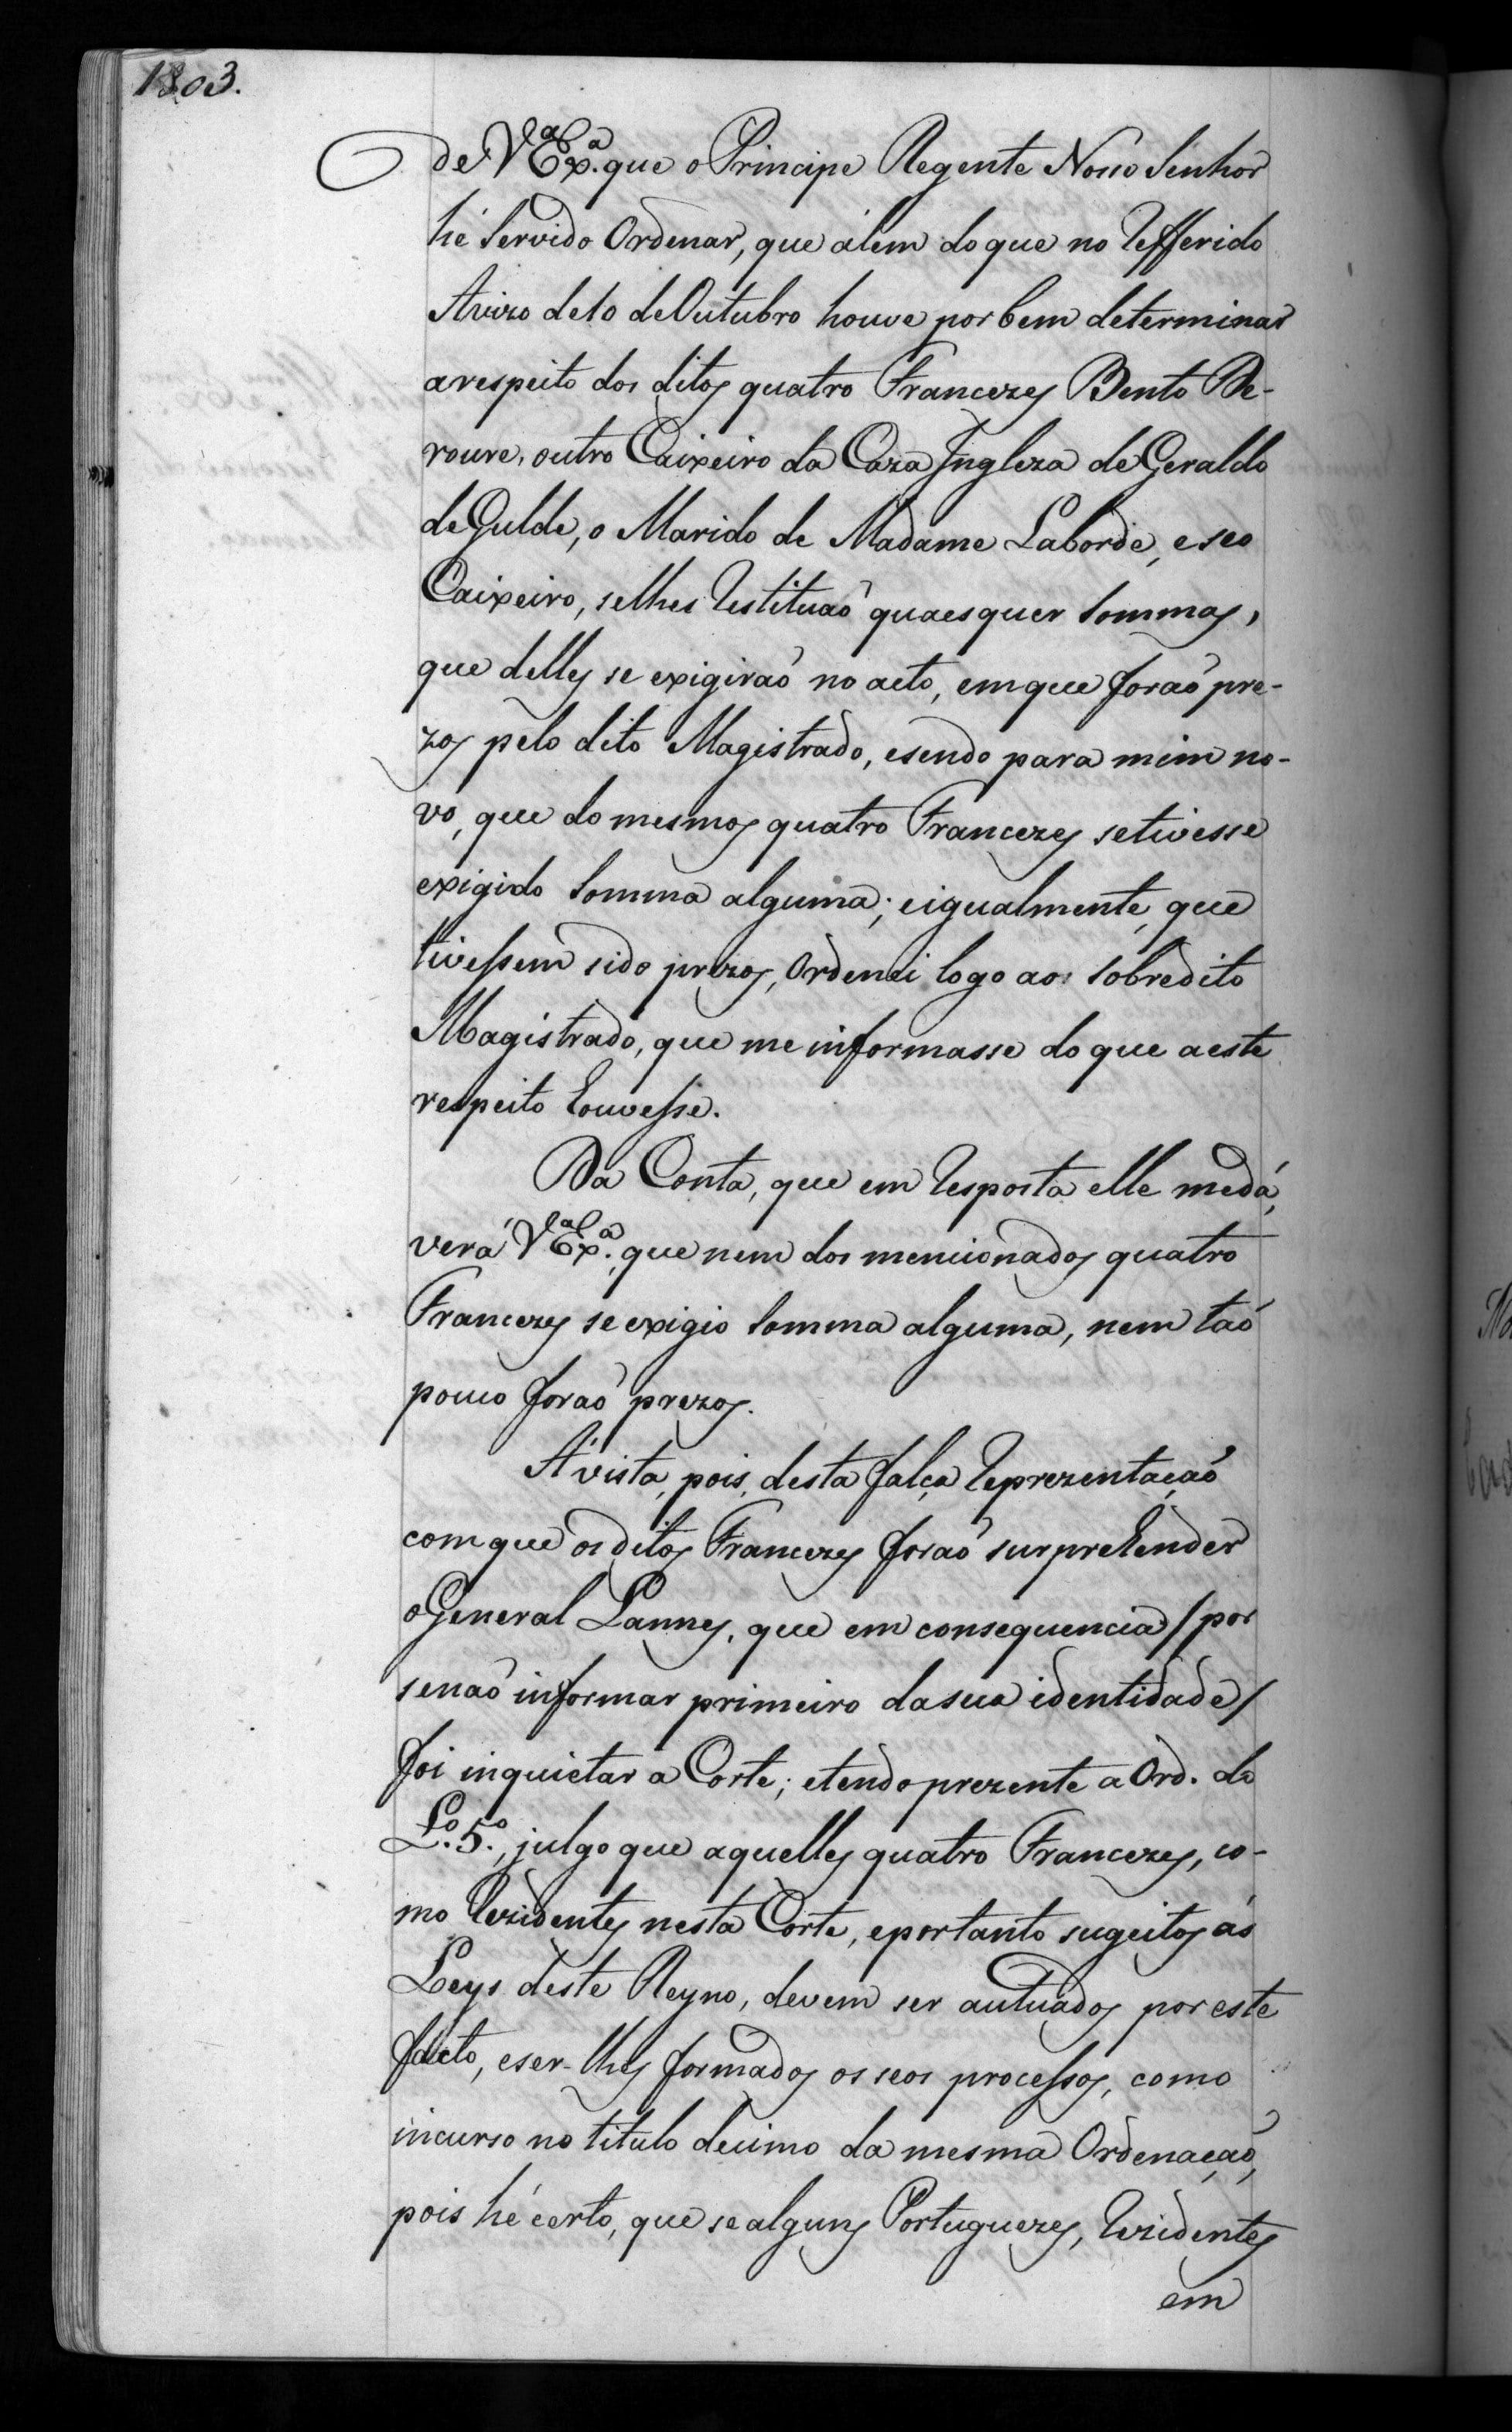 1803.
de V.ª Ex.ª que o Principe Regente Nosso Senhor
hé Servido Ordenar, que álem do que no Refferido
Avizo de 10 de Outubro houve por bem determinar
a respeito dos ditos quatro Francezes Bento De-
roure, outro Caixeiro da Caza Ingleza de Geraldo
de Gulde, o Marido de Madame Laborde, e seo
Caixeiro, se lhes Restituaõ quaesquer Sommas,
que delles se exigiraõ no acto, em que foraõ pre-
zos pelo dito Magistrado, e sendo para mim no-
vo, que do mesmos quatro Francezes se tivesse
exigido Somma alguma; e igualmente, que
tivessem sido prezos, Ordenei logo ao Sobredito
Magistrado, que me informasse do que a este
respeito houvesse.
Da Conta, que em Resposta elle me dá,
verá V.ª Ex.ª, que nem dos mencionados quatro
Francezes se exigio Somma alguma, nem taõ
pouco foraõ prezos.
Á vista, pois, desta falça Reprezentaçaõ
com que os ditos Francezes foraõ surprehender
o General Lannes, que em consequencia / por
se naõ informar primeiro da sua identidade /
foi inquietar a Corte; e tendo prezente a Ord. do
L.º 5.º, julgo que aquelles quatro Francezes, co-
mo Rezidentes nesta Corte, e portanto sugeitos ás
Leys deste Reyno, devem ser autuados por este
facto, e ser-lhes formados os seos processos, como
incurso no titulo decimo da mesma Ordenaçaõ,
pois hé certo, que se alguns Portuguezes, Rezidentes
em